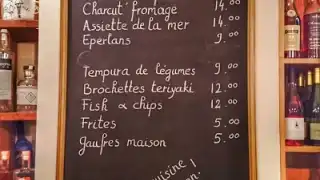 Charcut' fromage 14.00
Assiette de la mer 14.00
Eperlans 9.00
Tempura de légumes 9.00
Brochettes teriyaki 12.00
Fish & chips 12.00
Frites 5.00
gaufres maison 5.00
cuisine !